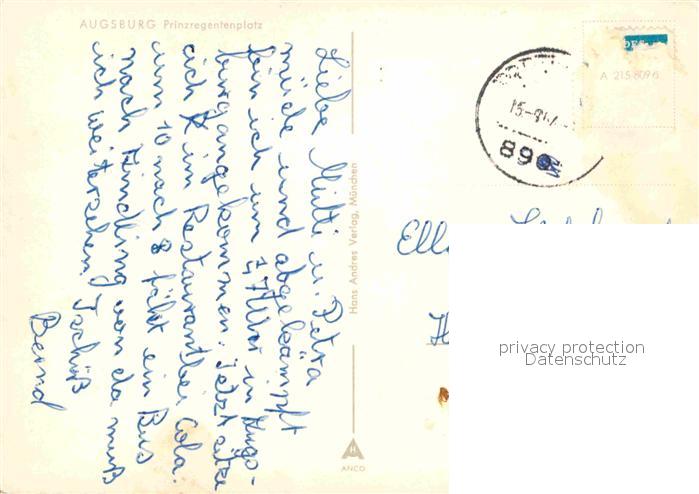 AUGSBURG Prinzregentenplatz
Liebe Mutti u. Petra
müde und abgekämpft
bin ich um 17 Uhr in Augs-
burg angekommen. Jetzt sitze
ich im Restaurant bei Cola.
um 10 nach 8 fährt ein Bus
nach von da muß
ich weitersehen. Tschüß
Bernd
Hans Andres Verlag, München
ANCO
A 215 809 6
15.
89
privacy protection
Datenschutz